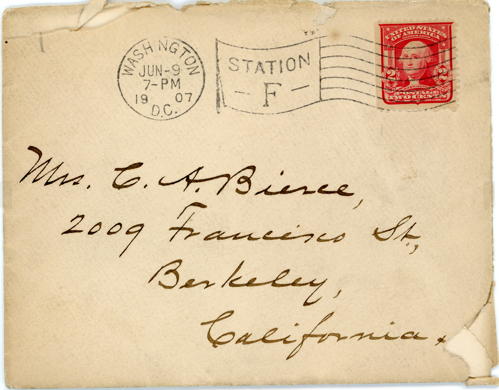 WASHINGTON
JUN-9
7-PM
1907
D.C.
STATION
-F-
UNITED STATES
OF AMERICA
2 2
POSTAGE
TWO CENTS
Mrs. C. A. Bierce,
2009 Francisco St.,
Berkeley,
California.